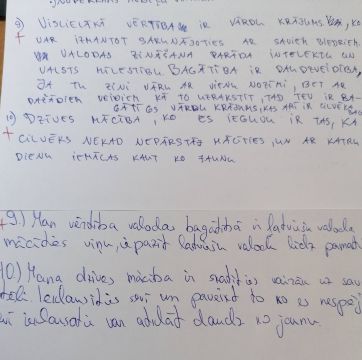 9) VISLIELĀKĀ VĒRTĪBA IR VĀRDU KRĀJUMS, KO
VAR IZMANTOT SARUNĀJOTIES AR SAVIEM BIEDRIEM.
VALODAS ZINĀŠANA PARĀDA INTELEKTU UN
VALSTS MĪLESTĪBU. BAGĀTĪBA IR DAUDZVEIDĪBA,
JA TU ZINI VĀRDU AR VIENU NOZĪMI, BET AR
DAŽĀDIEM VEIDIEM KĀ TO UZRAKSTĪT, TAD TEV IR BA-
GĀTĪGS VĀRDU KRĀJUMS, KAS ARĪ IR CILVĒKA
10) DZĪVES MĀCĪBA, KO ES IEGUVU IR TAS, KA
CILVĒKS NEKAD NEPĀRSTĀJ MĀCĪTIES, UN AR KATRU
DIENU IEMĀCAS KAUT KO JAUNU
9.) Man vērtība valodas bagātībā ir latviešu valoda
mācīties viņu, iepazīt latviešu valodu līdz pamat
10) Mana dzīves mācība ir skatīties vairāk uz sav
Ieklausīties sevī un paveikt to ko es nespēj
ieklausoties var atklāt daudz ko jaunu.